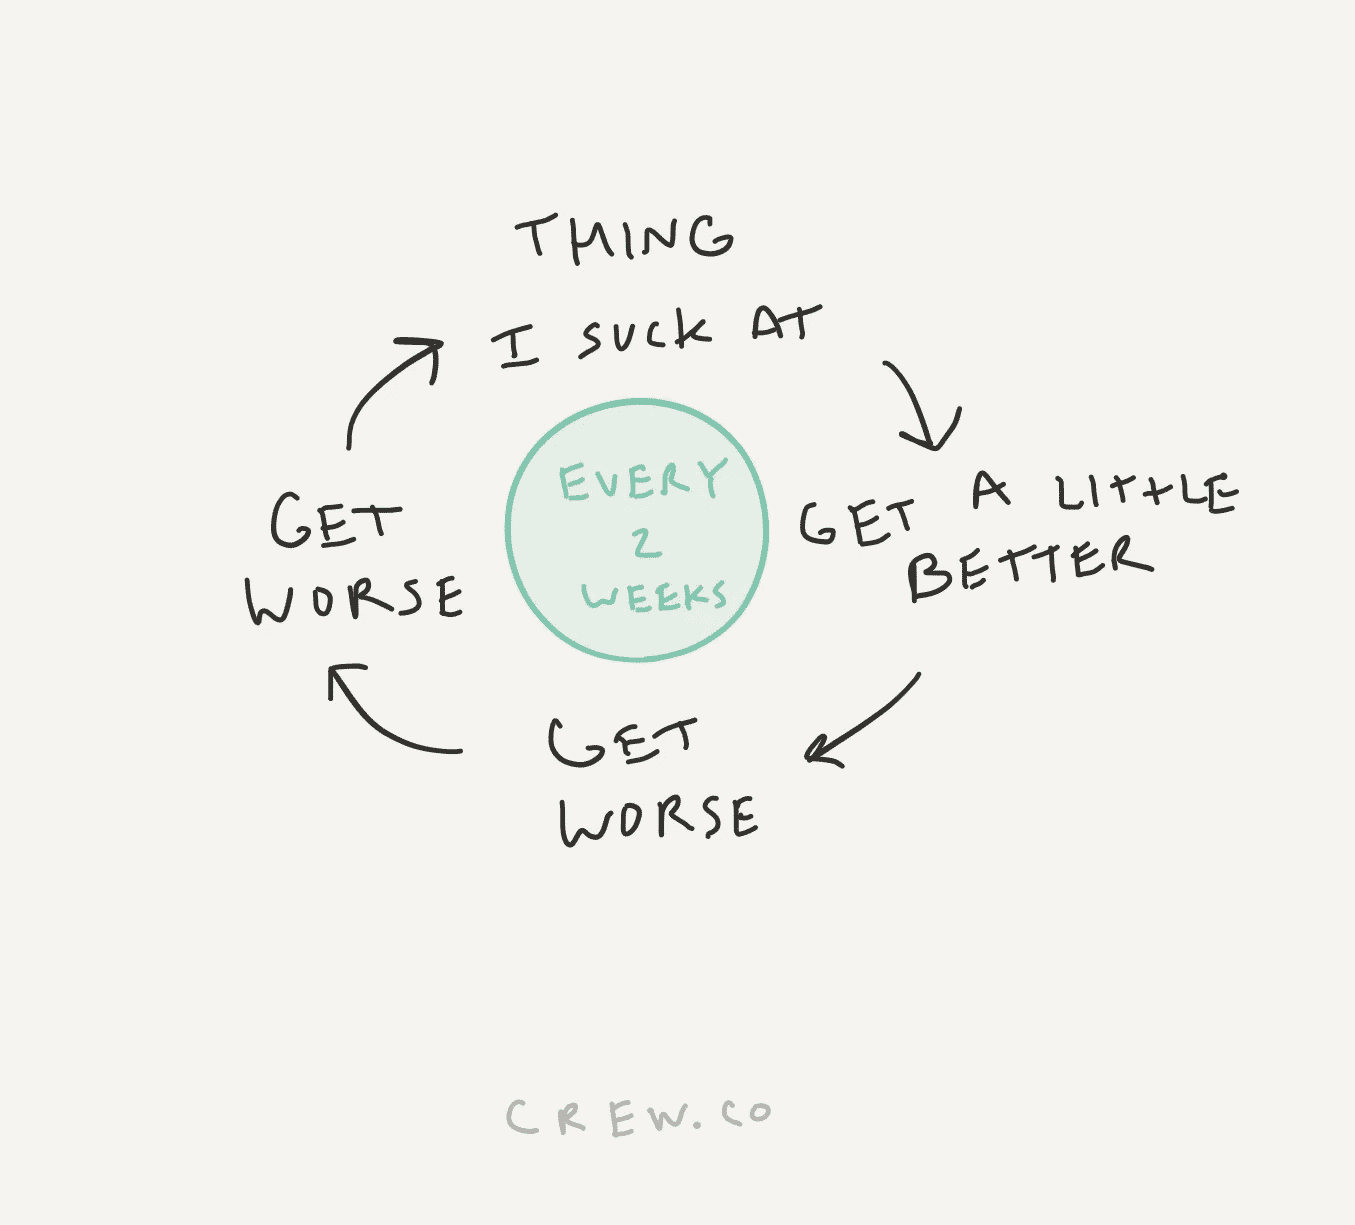 THING
I SUCK AT
GET A LITTLE
BETTER
GET
WORSE
GET
WORSE
EVERY
2
WEEKS
CREW.CO